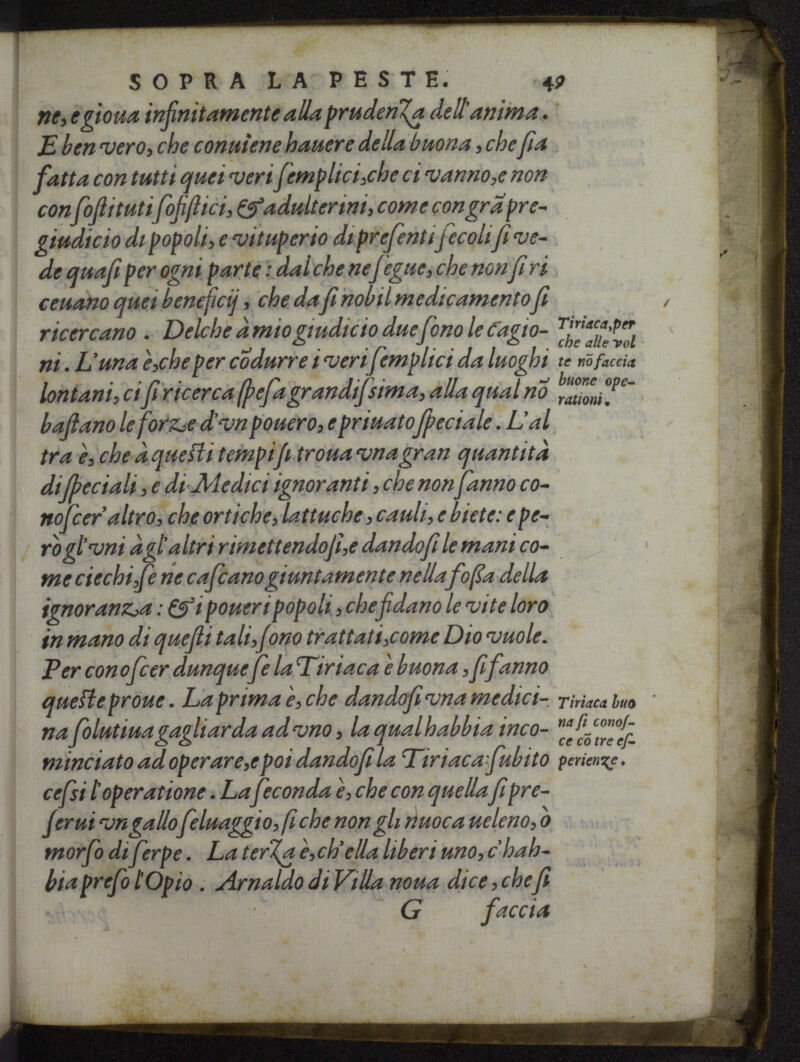 SOPRA LA PESTE. 49
ne, e gioua infinitamente alla prudenza dell'anima.
E ben vero, che conuiene hauere della buona, che sia
fatta con tutti quei veri semplici, che ci vanno, e non
con sostituti sofistici, & adulterini, come con grā pre-
giudicio di popoli, e vituperio di presenti secoli si ve-
de quasi per ogni parte: dal che ne segue, che non si ri
ceuano quei beneficij, che da sì nobil medicamento si
ricercano. Delche à mio giudicio due sono le cagio-
ni. L'una è, che per cōdurre i veri semplici da luoghi
lontani, ci si ricerca spesa grandissima, alla qual nō
bastano le forze d'vn pouero, e priuato speciale. L'al
tra è, che à questi tempi si troua vna gran quantità
di speciali, e di Medici ignoranti, che non sanno co-
noscer'altro, che ortiche, lattuche, cauli, e biete: e pe-
rò gl'vni à gl'altri rimettendosi, e dandosi le mani co-
me ciechi, se ne cascano giuntamente nella fossa della
ignoranza: & i poueri popoli, che fidano le vite loro
in mano di questi tali, sono trattati, come Dio vuole.
Per conoscer dunque se la Tiriaca è buona, si fanno
queste proue. La prima è, che dandosi vna medici-
na solutiua gagliarda ad vno, la qual habbia inco-
minciato ad operare, e poi dandosi la Tiriaca: subito
cessi l'operatione. La seconda è, che con quella si pre-
serui vn gallo seluaggio, si che non gli nuoca ueleno, ò
morso di serpe. La terza è, ch'ella liberi uno, c'hab-
bia preso l'Opio. Arnaldo di Villa noua dice, che si
G faccia
Tiriaca, per
che alle vol
te nō faccia
buone ope-
rationi.
Tiriaca buo
na si conos-
ce cō tre es-
perienze.